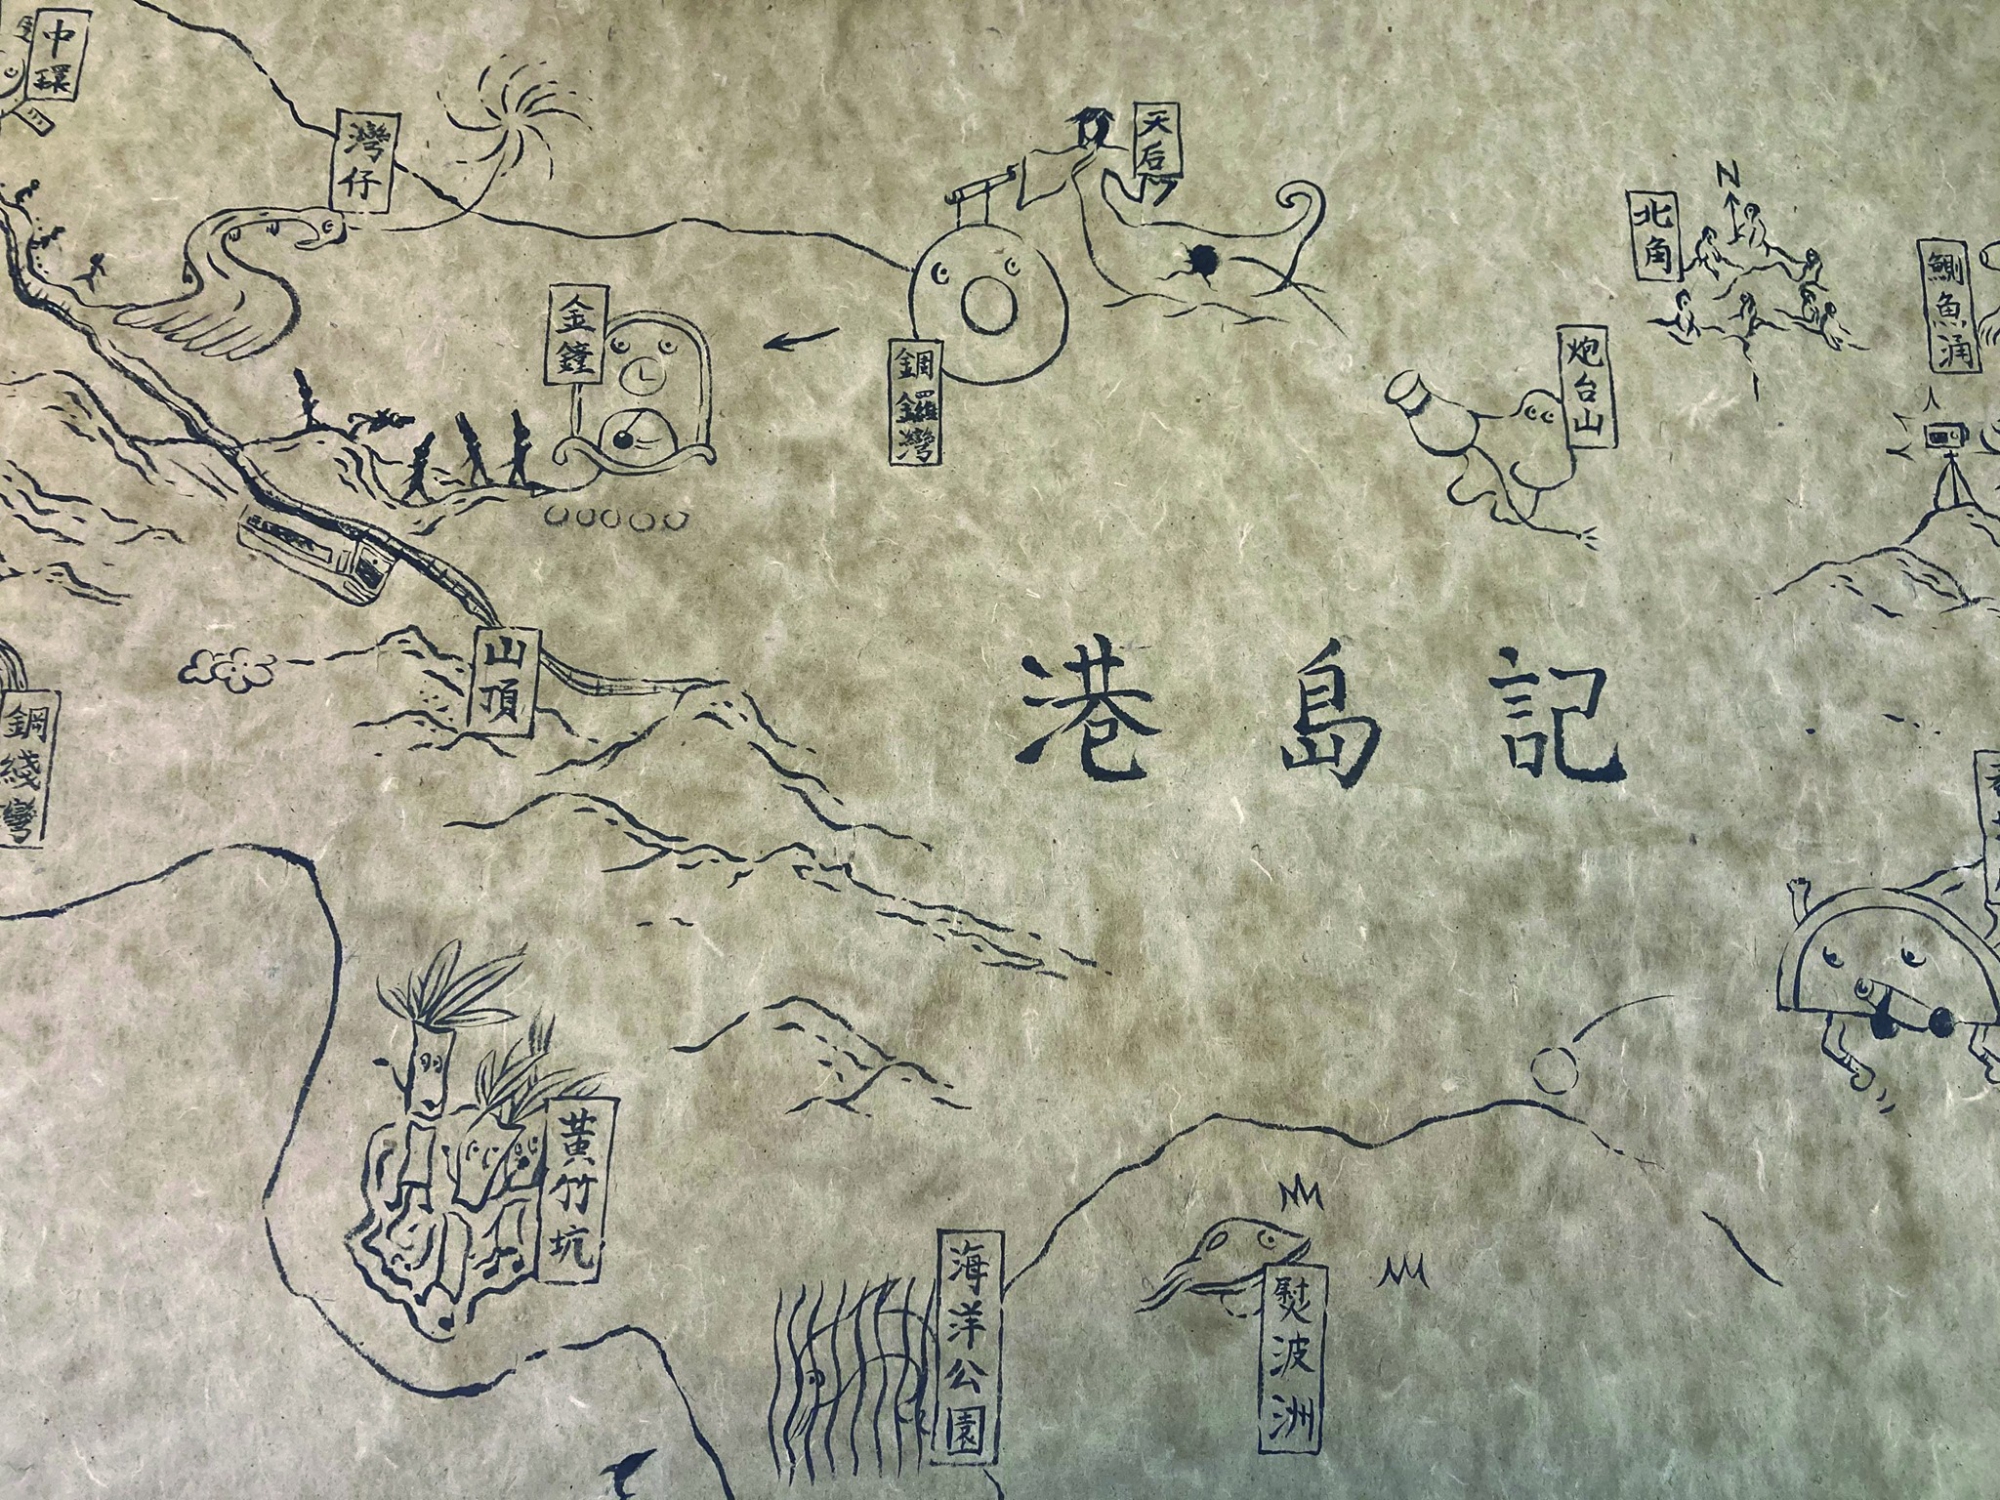 中環
灣仔
天后
N
北角
鰂魚涌
金鐘
銅鑼灣
炮台山
山頂
港島記
鋼綫灣
黃竹坑
海洋公園
熨波洲